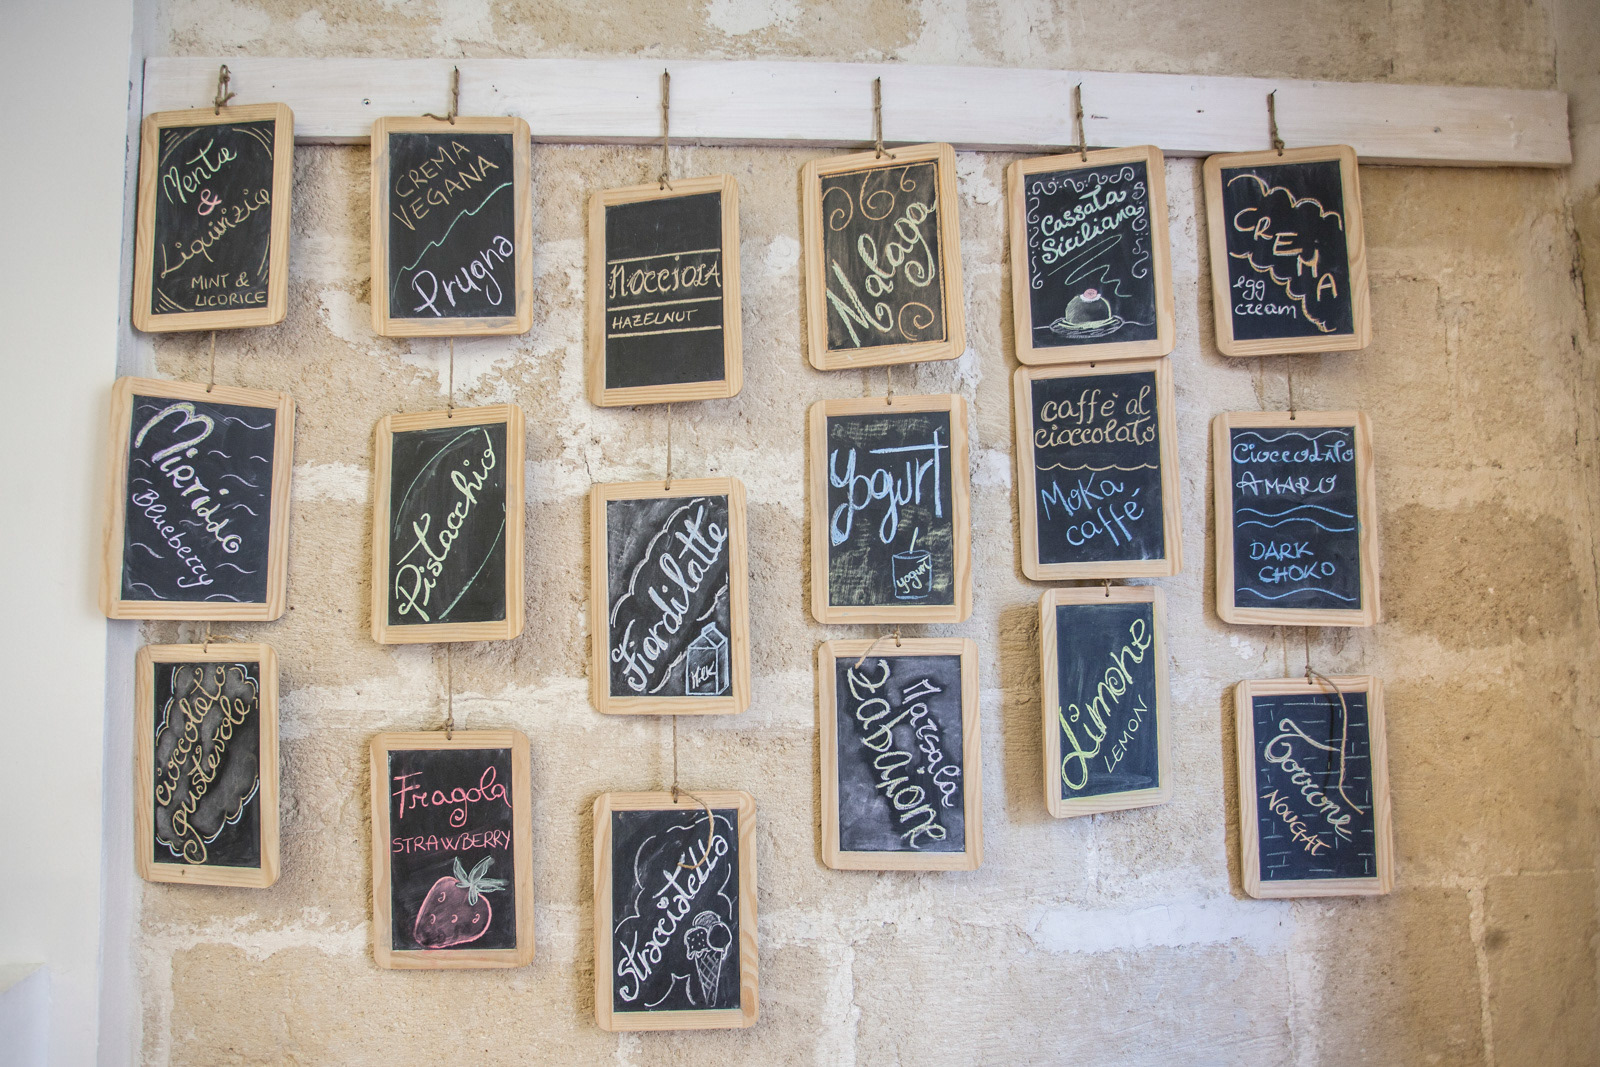 Menta
&
Liquirizia
MINT &
LICORICE
Mirtillo
Blueberry
cioccolato
gustevole
CREMA
VEGANA
Prugna
Pistacchio
Fragola
STRAWBERRY
NOCCIOLA
HAZELNUT
Fiordilatte
MILK
Stracciatella
Malaga
Yogurt
yogurt
Zabaione
Marsala
Cassata
Siciliana
caffè al
cioccolato
Moka
caffé
Limone
LEMON
CREMA
egg
cream
Cioccolato
AMARO
DARK
CHOKO
Torrone
NOUGAT